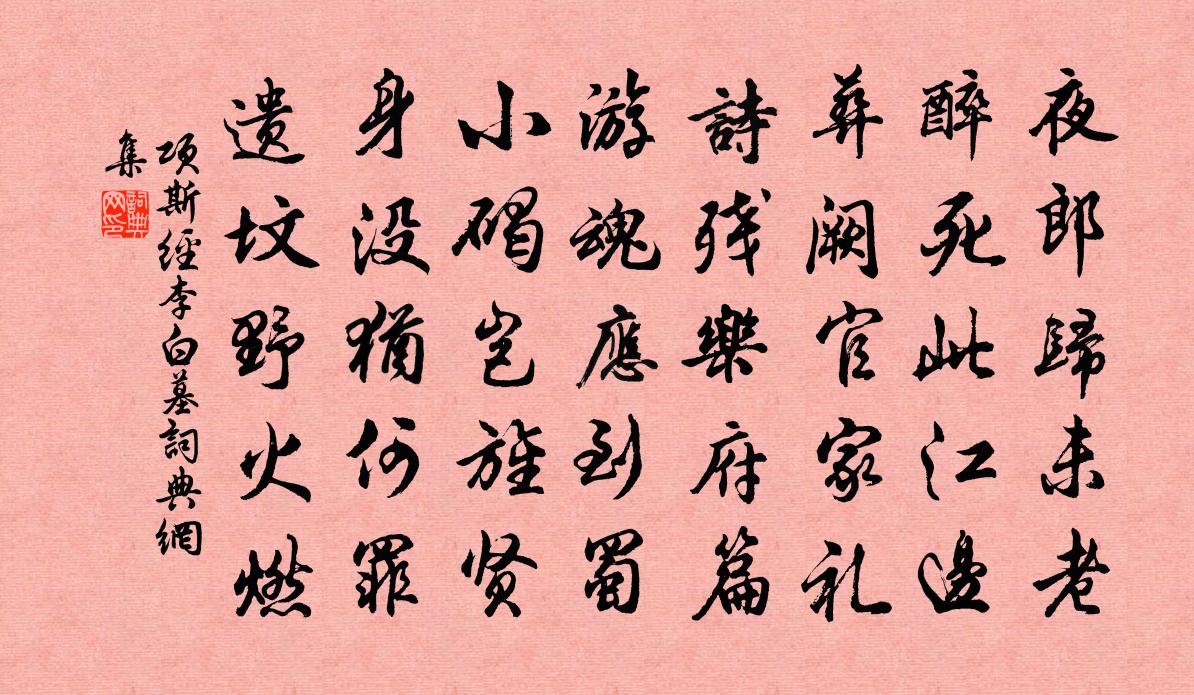 夜郎歸未老
醉死此江邊
葬闕官家礼
詩残樂府篇
游魂應到蜀
小碣岂旌贤
身没猶何罪
遗坟野火燃
項斯經李白墓詞典網
集
詞典
网印